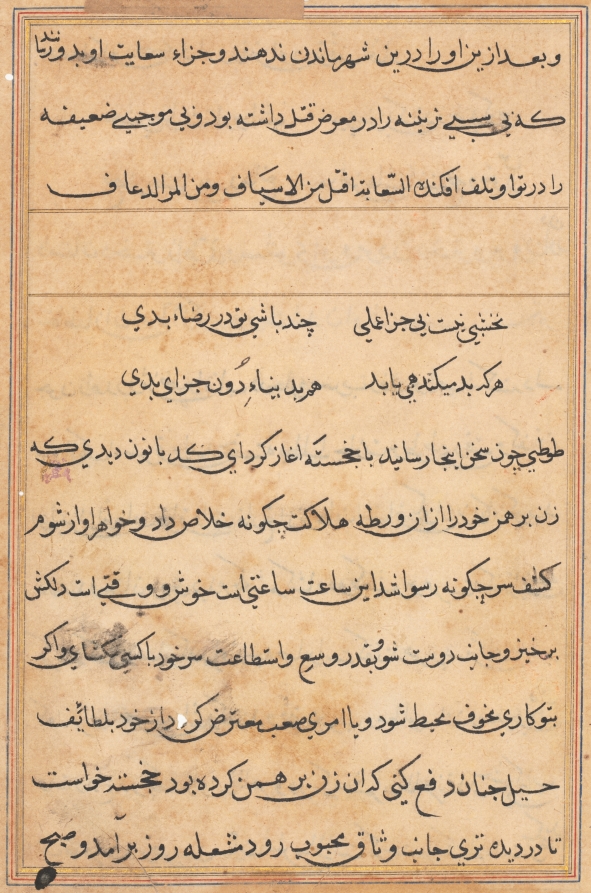 و بعد ازین او را درین شهر ماندن ندهند و جزاء سعایت او بدو رسانند
که بی سببی زنینه را در معرض قتل داشته بود و بی موجبی ضعیفه
را در تلف افکنده السعایة اقتل من الاسیاف ومن السم الذعاف
نخشبی نیست بی جزا عملی چند باشی تو در رضاء بدی
هرکه بد میکند همی یابد هم بدینیاء دون جزای بدی
طوطی چون سخن اینجا رسانید با خجسته اغاز کرد ای کدبانون دیدی که
زن برهمن خود را ازان ورطه هلاکت چگونه خلاص داد و خواهر او از شوم
کشف سر چگونه رسوا شد این ساعت ساعتی است خوش و وقتی است دلکش
برخیز و جانب دوست شو و بقدر وسع و استطاعت سر خود با کسی مکشای و اکر
بتو کاری مخوف محیط شود و یا امری صعب معترض کردد از خود بلطائف
حیل چنان دفع کنی که ان زن برهمن کرده بود خجسته خواست
تا در دیده تری جانب وثاق محبوب رود مشعله روز برآمد و صبح